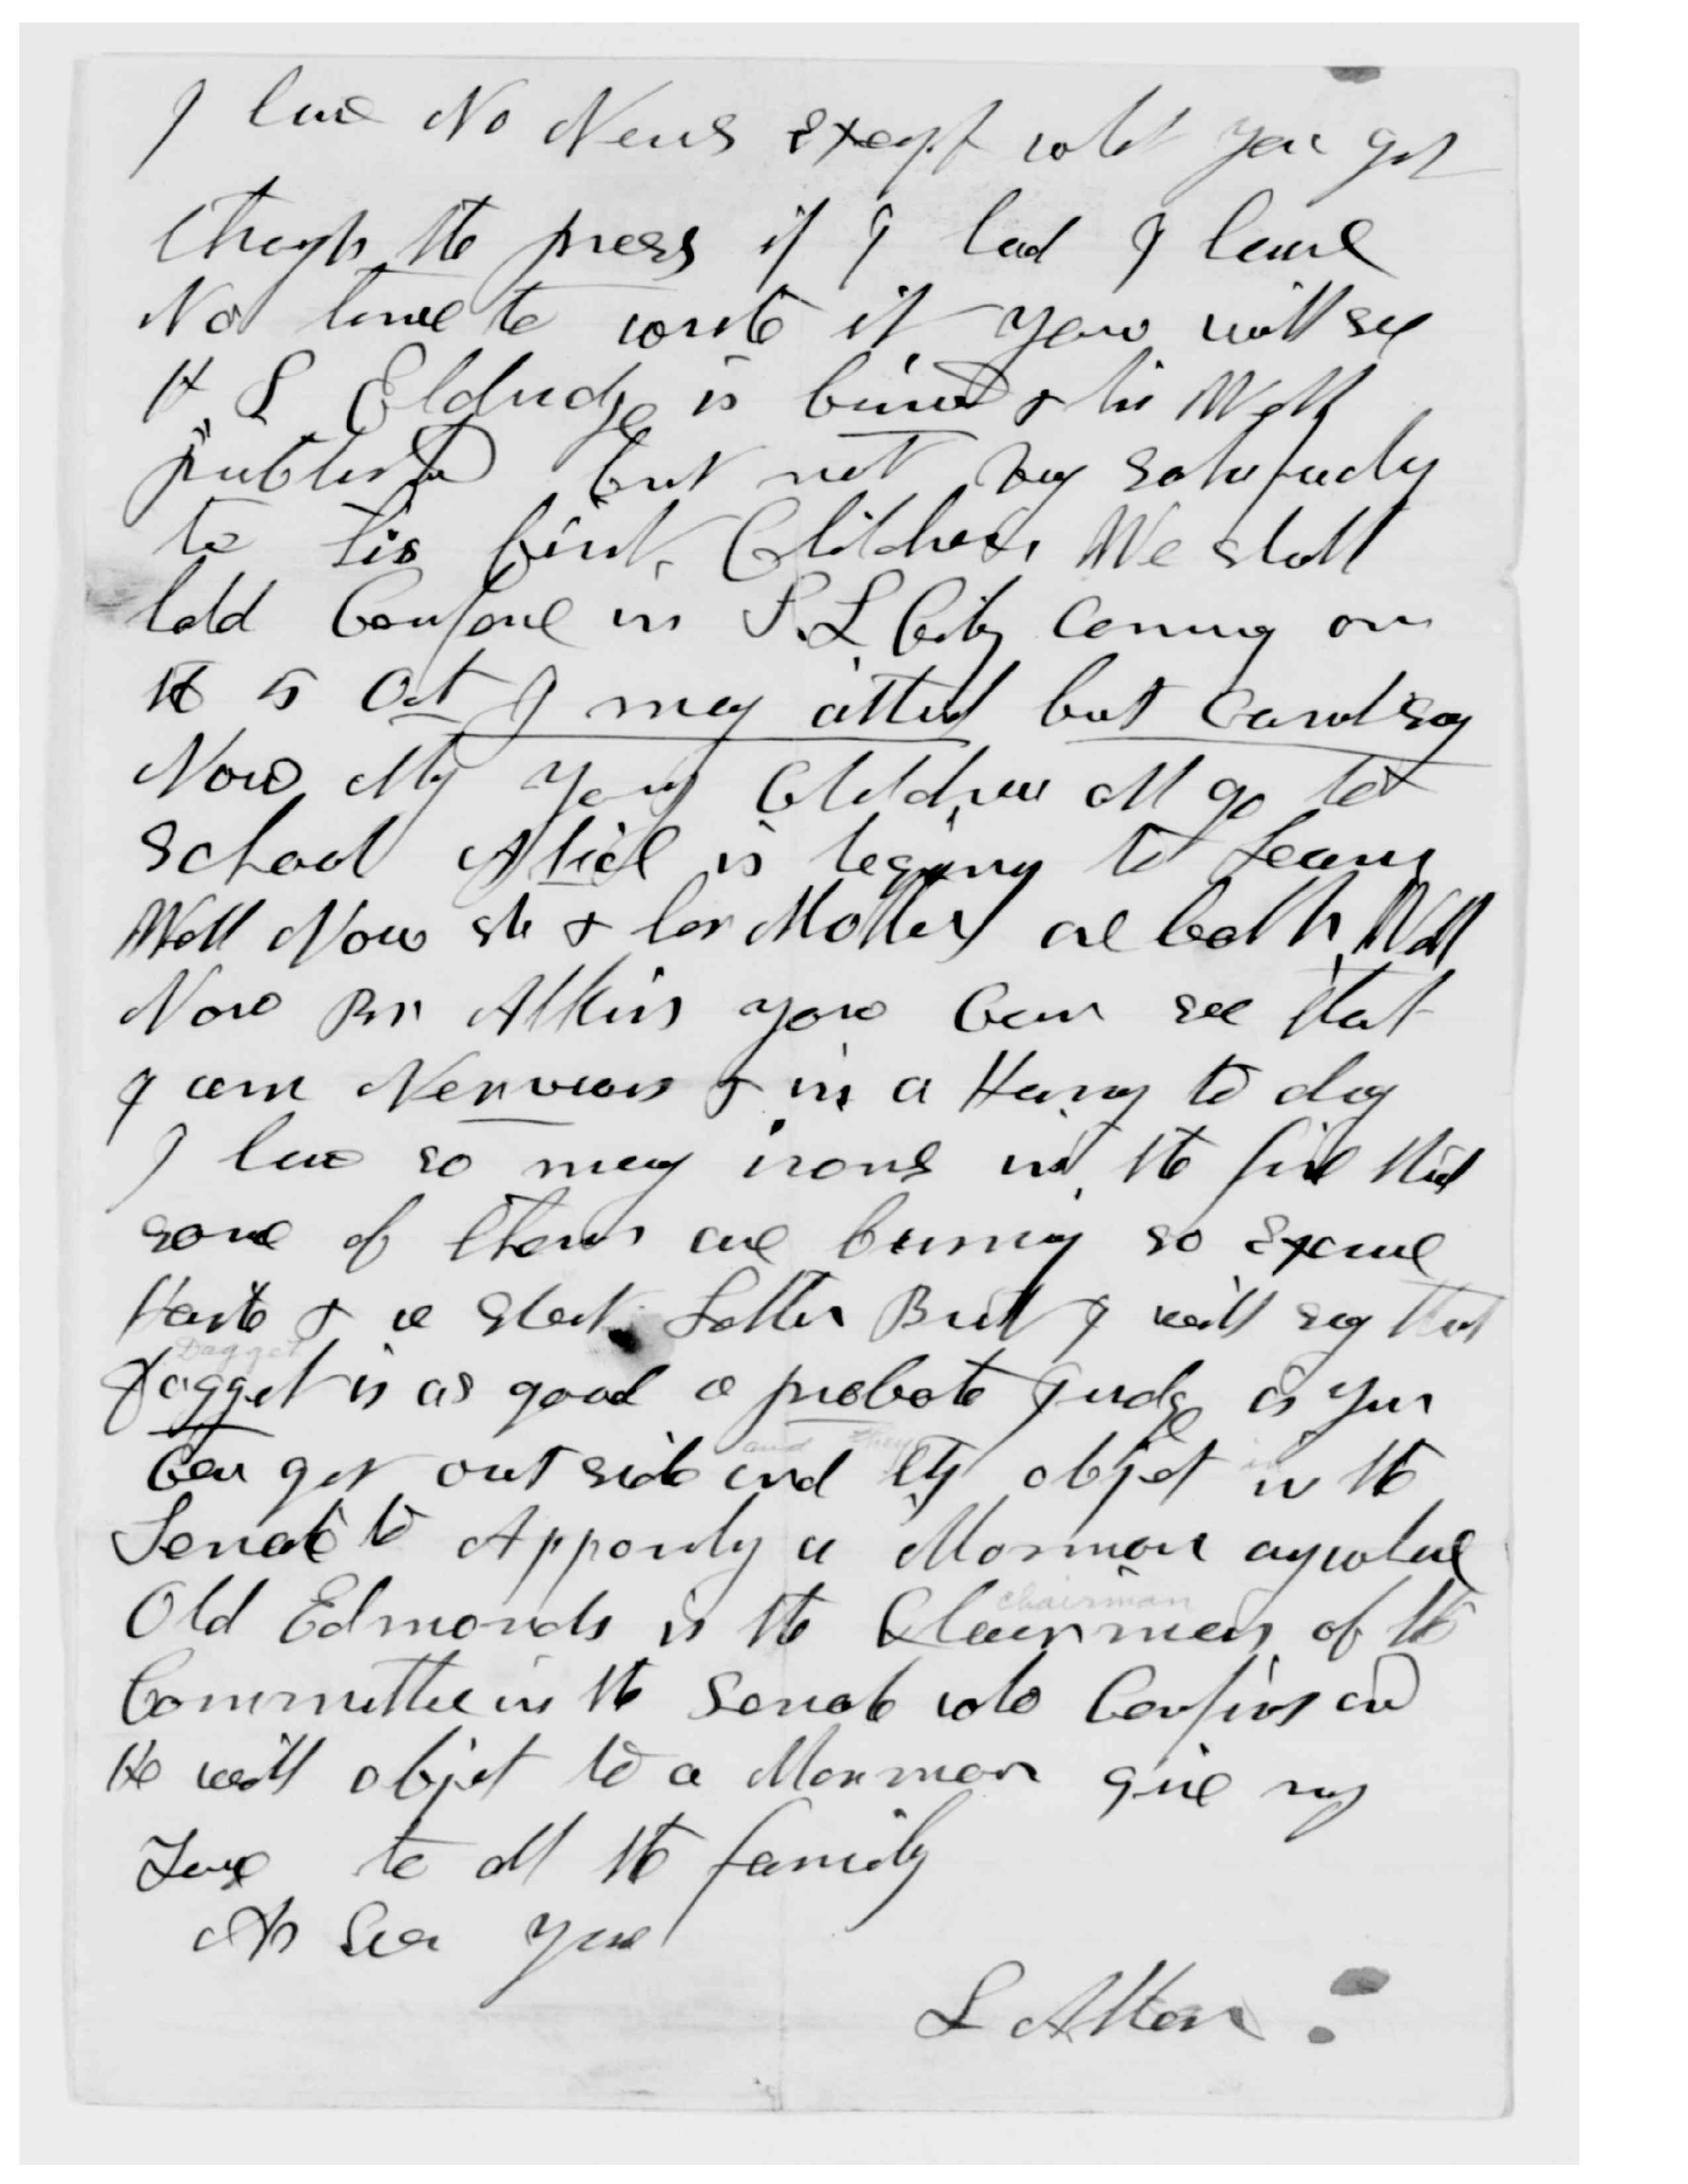 I have No News except what you get
through the press if I had I have
No time to write it you will see
H S Eldredge is buried & his Will
published but not very satisfactory
to his first Children We shall
hold Confrence in S. L City Coming on
the 5 Oct I may attend but Cant say
Now My young Children all go to
School Alice is begining to Learn
Well Now she & her Mother are both Well
Now Br Atkin you Can see that
I am Nervous & in a Hurry to day
I have so many irons in the fire that
some of them are burning so Excuse
Haste & a short Letter But I will say that
Dagget
Dagget is as good a probate Judge as you
and they
Can get out side and they object in the
Senate to Appointing a Mormon anywhere
chairman
Old Edmonds is the Chairman of the
Committee in the Senate who Confirm and
He will object to a Mormon give my
Love to all the family
As Ever Your